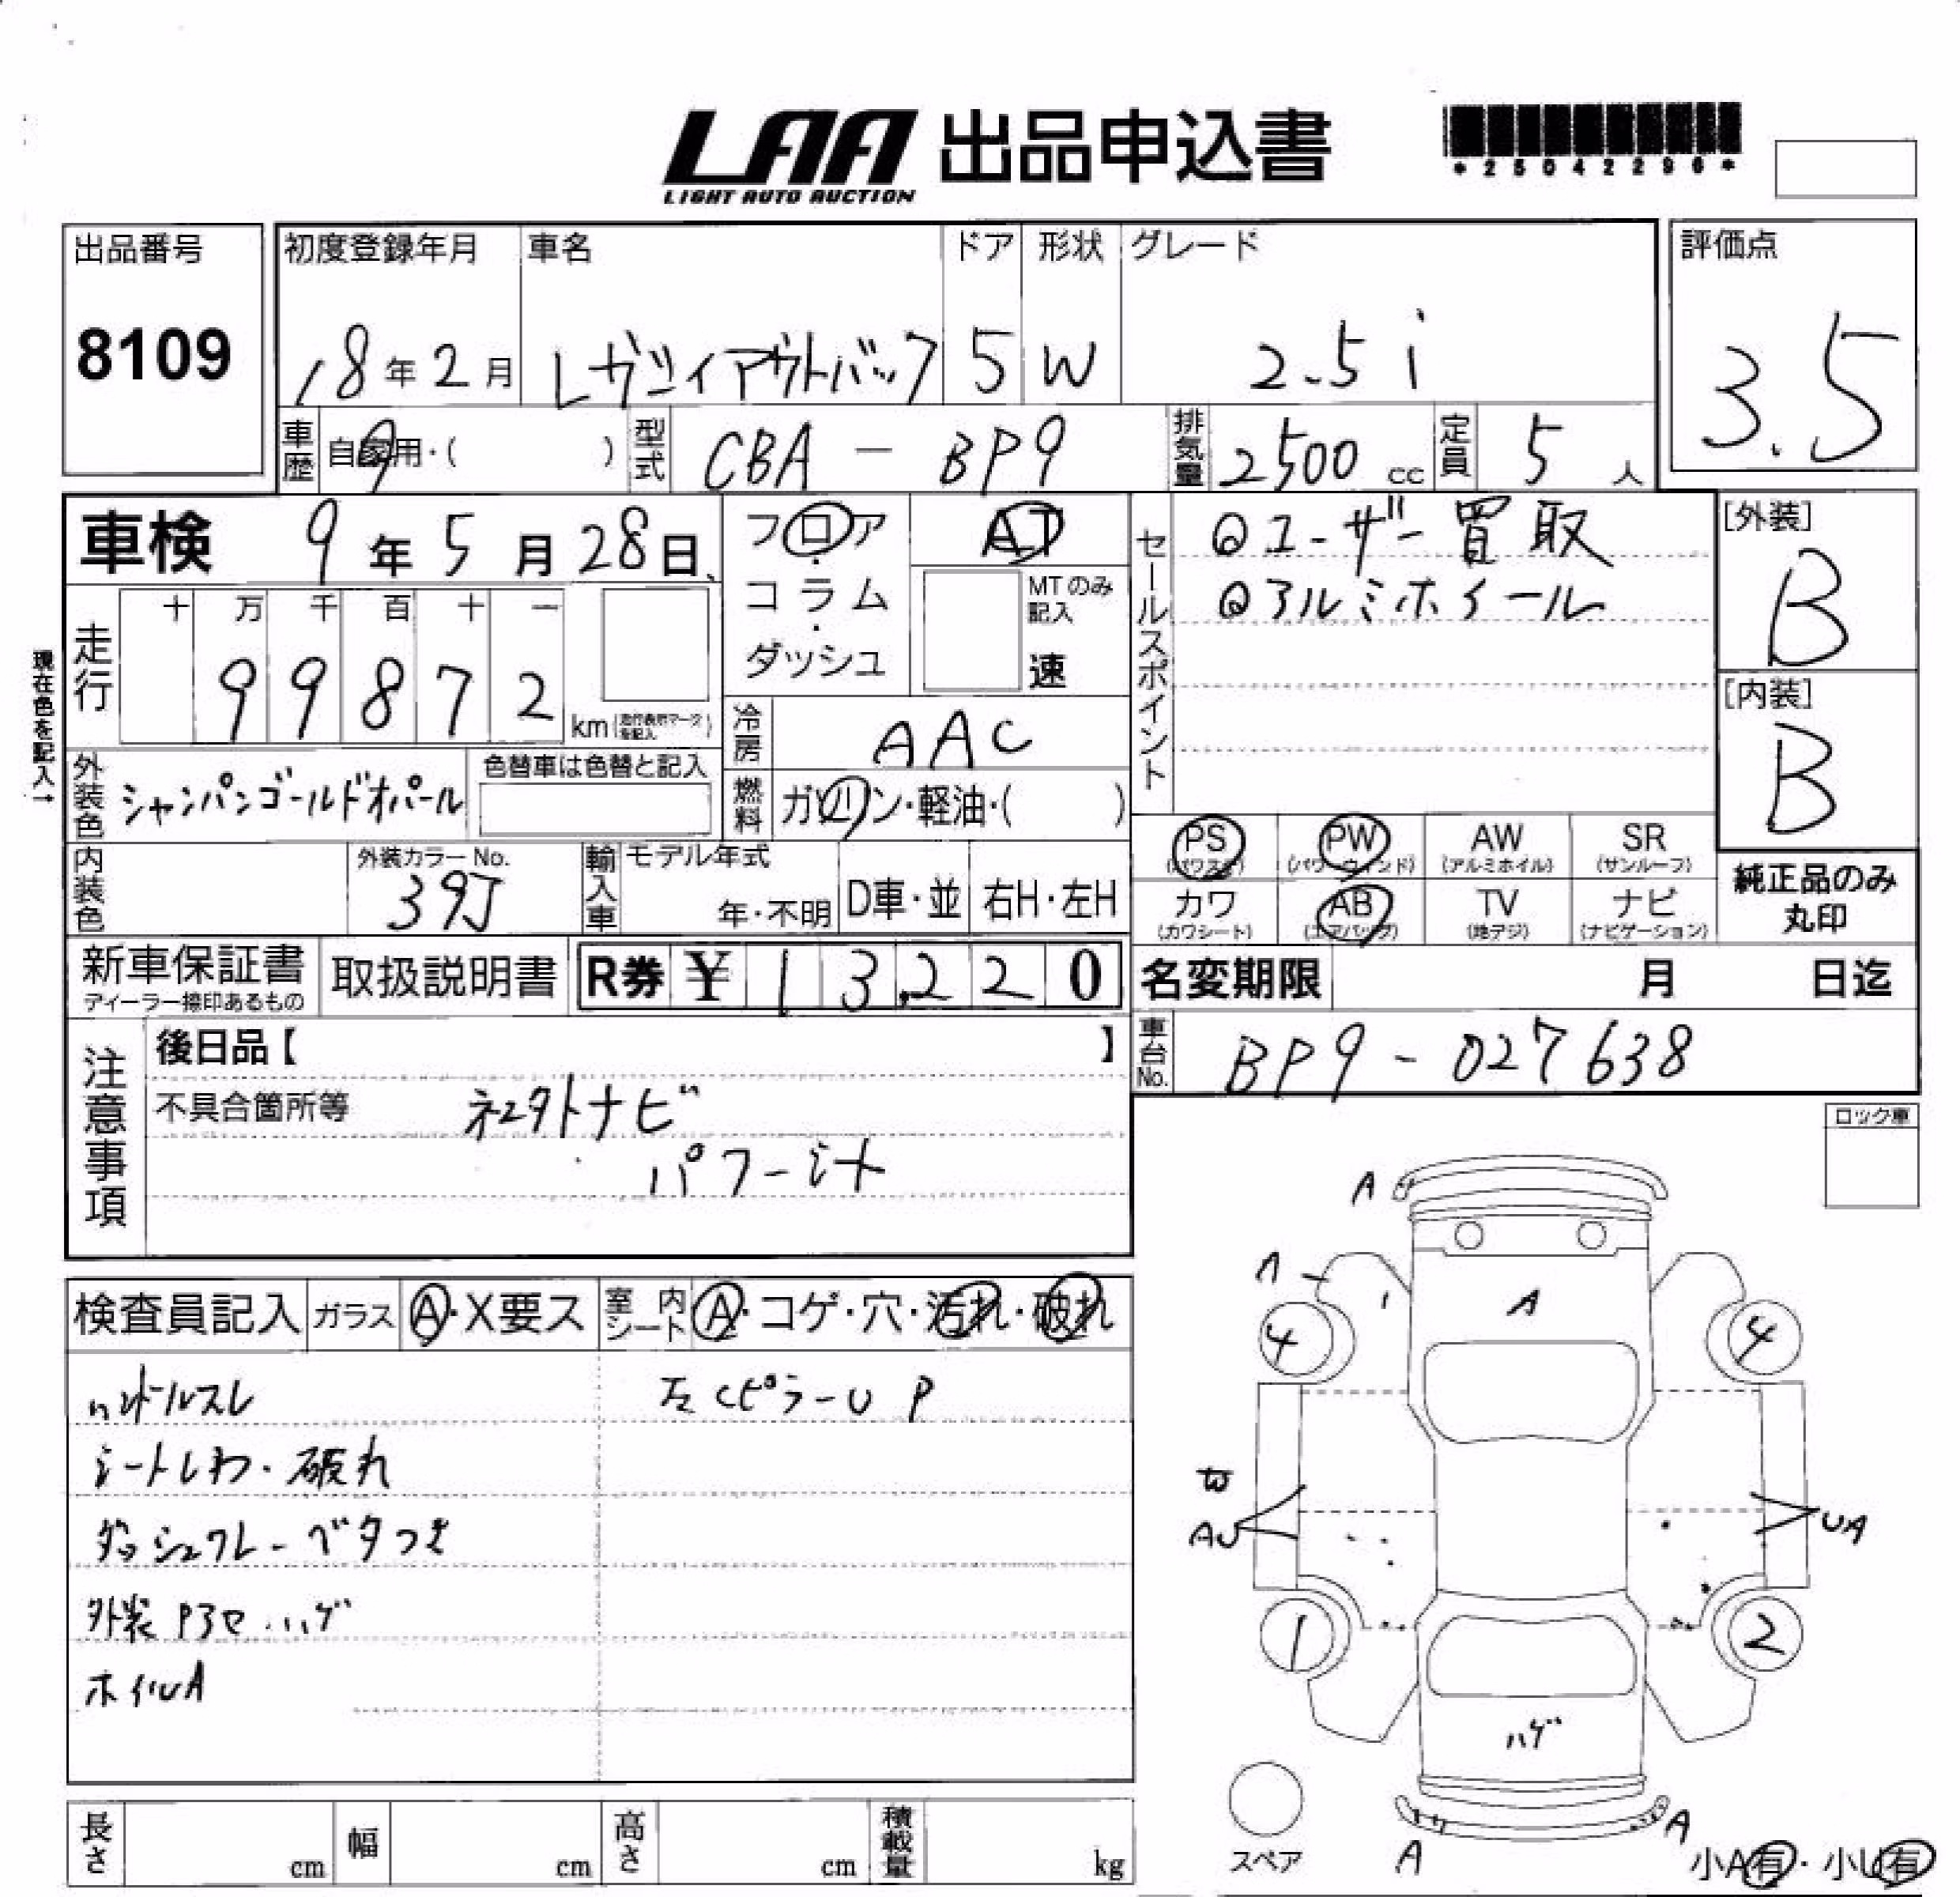 LAA 出品申込書
LIGHT AUTO AUCTION
*25042296*
出品番号 初度登録年月 車名 ドア 形状 グレード 評価点
8109 18年2月 レガシィアウトバック 5 W 2.5i 3.5
車歴 自家用・( ) 型式 CBA-BP9 排気量 2500cc 定員 5人
車検 9年5月28日 フロア AT セールスポイント ◎ユーザー買取 [外装]
コラム MTのみ記入 ◎アルミホイール B
ダッシュ 速
走行 十 万 千 百 十 一
99872 km
現在色を記入→
[内装]
B
冷房 AAC
外装色 シャンパンゴールドオパール 色替車は色替と記入 燃料 ガソリン・軽油・( )
PS PW AW SR
(パワステ) (パワーウィンド) (アルミホイル) (サンルーフ)
カワ AB TV ナビ
(カワシート) (エアバッグ) (地デジ) (ナビゲーション)
純正品のみ
丸印
内装色 外装カラーNo. 39J 輸入車 モデル年式 年・不明 D車・並 右H・左H
新車保証書 取扱説明書 R券 ¥13,220 名変期限 月 日迄
ディーラー捺印あるもの
注意事項 後日品【 】 車台No. BP9-027638
不具合箇所等 ネエタトナビ
パワーシート
ロック車
検査員記入 ガラス A・X要ス 室内シート A・コゲ・穴・汚れ・破れ
ハンドルスレ 左CピラーU P
シートしわ・破れ
ダッシュワレ-ベタつき
外装Pアセ・ハゲ
ホイルA
A
A
4 4
W
AU UA
1 2
ハゲ
A A
スペア
小A有・小U有
長さ cm 幅 cm 高さ cm 積載量 kg